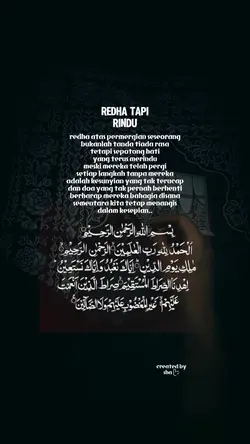 REDHA TAPI
RINDU
redha atas permergian seseorang
bukanlah tanda tiada rasa
tetapi sepotong hati
yang terus merindu
meski mereka telah pergi
setiap langkah tanpa mereka
adalah kesunyian yang tak terucap
dan doa yang tak pernah berhenti
berharap mereka bahagia disana
sementara kita tetap menangis
dalam kesepian..
بِسْمِ اللهِ الرَّحْمٰنِ الرَّحِيْمِ
اَلْحَمْدُ لِلّٰهِ رَبِّ الْعٰلَمِيْنَ الرَّحْمٰنِ الرَّحِيْمِ
مٰلِكِ يَوْمِ الدِّيْنِ اِيَّاكَ نَعْبُدُ وَاِيَّاكَ نَسْتَعِيْنُ
اِهْدِنَا الصِّرَاطَ الْمُسْتَقِيْمَ صِرَاطَ الَّذِيْنَ اَنْعَمْتَ
عَلَيْهِمْ غَيْرِ الْمَغْضُوْبِ عَلَيْهِمْ وَلَا الضَّآلِّيْنَ
created by